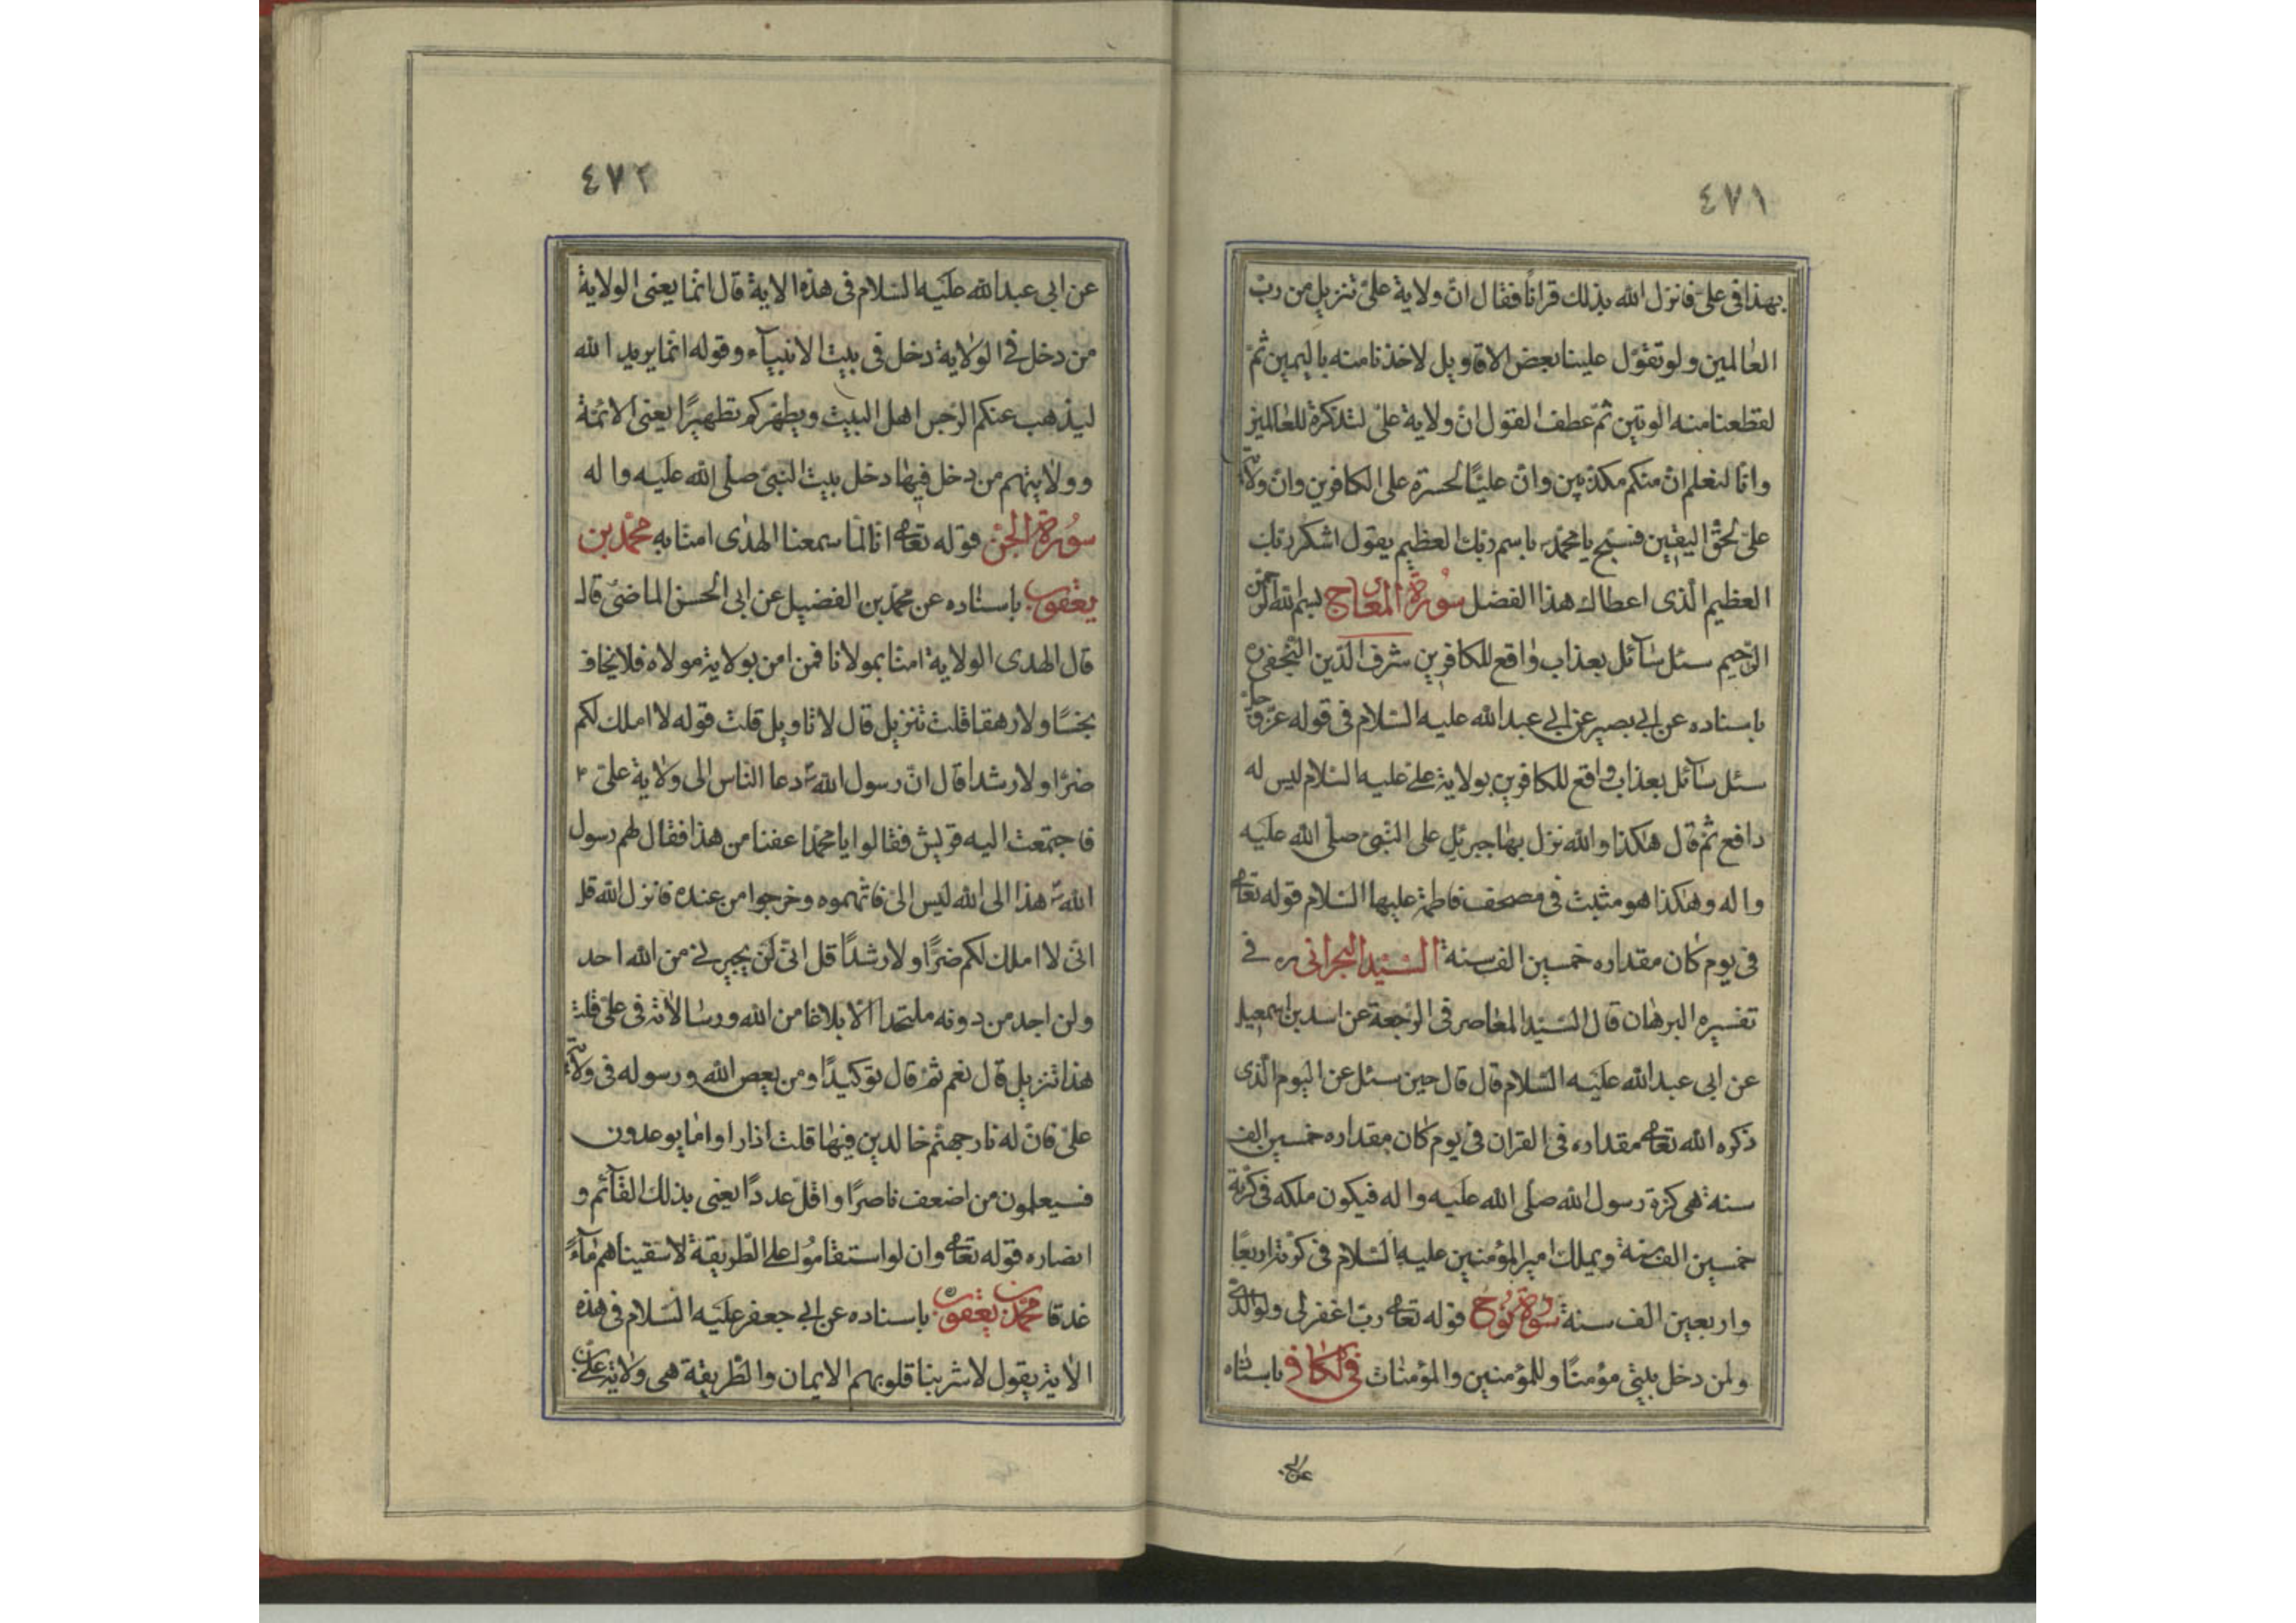 ٤٧١
بهذا فى علىّ فانزل الله بذلك قرانًا فقال انّ ولاية علىّ تنزيل من ربّ
العالمين ولو تقوّل علينا بعض الاقاويل لاخذنا منه باليمين ثمّ
لقطعنا منه الوتين ثمّ عطف القول انّ ولاية علىّ لتذكرة للعالمين
وانّا لنعلم انّ منكم مكذّبين وانّ عليًّا لحسرة على الكافرين وانّ ولايته
علىّ لحقّ اليقين فسبّح يا محمّد باسم ربّك العظيم يقول اشكر ربّك
العظيم الّذى اعطاك هذا الفضل سورة المعارج بسم الله الرحمن
الرّحيم سئل سآئل بعذاب واقع للكافرين شرف الدّين النّجفى ره
باسناده عن ابى بصير عن ابى عبد الله عليه السّلام فى قوله عزّ وجلّ
سئل سآئل بعذاب واقع للكافرين بولاية على عليه السّلام ليس له
دافع ثمّ قال هكذا والله نزل بها جبرئيل على النّبىّ صلّى الله عليه
واله وهكذا هو مثبت فى مصحف فاطمة عليها السّلام قوله تعالى
فى يوم كان مقداره خمسين الف سنة السّيّد البحرانى ره فى
تفسيره البرهان قال السّيّد المعاصر فى الرّجعة عن اسد بن اسمعيل
عن ابى عبد الله عليه السّلام قال قال حين سئل عن اليوم الّذى
ذكره الله تعالى مقداره فى القران فى يوم كان مقداره خمسين الف
سنة هى كرّة رسول الله صلّى الله عليه واله فيكون ملكه فى كرّته
خمسين الف سنة ويملك امير المؤمنين عليه السّلام فى كرّته اربعًا
واربعين الف سنة سورة نوح قوله تعالى ربّ اغفر لى ولوالدىّ
ولمن دخل بيتى مؤمنًا وللمؤمنين والمؤمنات فى الكافى باسناده
عن ابى
٤٧٢
عن ابى عبد الله عليه السّلام فى هذه الاية قال انّما يعنى الولاية
من دخل فى الولاية دخل فى بيت الانبيآء وقوله انّما يريد الله
ليذهب عنكم الرّجس اهل البيت ويطهّركم تطهيرًا يعنى الائمّة
وولايتهم من دخل فيها دخل بيت النّبىّ صلّى الله عليه واله
سورة الجنّ قوله تعالى انّا لمّا سمعنا الهدى امنّا به محمّد بن
يعقوب باسناده عن محمّد بن الفضيل عن ابى الحسن الماضى قال
قال الهدى الولاية امنّا بمولانا فمن امن بولاية مولاه فلا يخاف
بخسًا ولا رهقا قلت تنزيل قال لا تاويل قلت قوله لا املك لكم
ضرًّا ولا رشدا قال انّ رسول الله ص دعا النّاس الى ولاية علىّ ع
فاجتمعت اليه قريش فقالوا يا محمّد اعفنا من هذا فقال لهم رسول
الله ص هذا الى الله ليس الىّ فاتّهموه وخرجوا من عنده فانزل الله قل
انّى لا املك لكم ضرًّا ولا رشدًا قل انّى لن يجيرنى من الله احد
ولن اجد من دونه ملتحدا الّا بلاغا من الله ورسالاته فى علىّ قلت
هذا تنزيل قال نعم ثمّ قال توكيدًا ومن يعص الله ورسوله فى ولاية
علىّ فانّ له نار جهنّم خالدين فيها قلت اذا راوا ما يوعدون
فسيعلمون من اضعف ناصرًا واقلّ عددًا يعنى بذلك القآئم و
انصاره قوله تعالى وان لو استقاموا على الطّريقة لاسقيناهم مآءً
غدقا محمّد بن يعقوب باسناده عن ابى جعفر عليه السّلام فى هذه
الاية يقول لاشربنا قلوبهم الايمان والطّريقة هى ولاية على بن